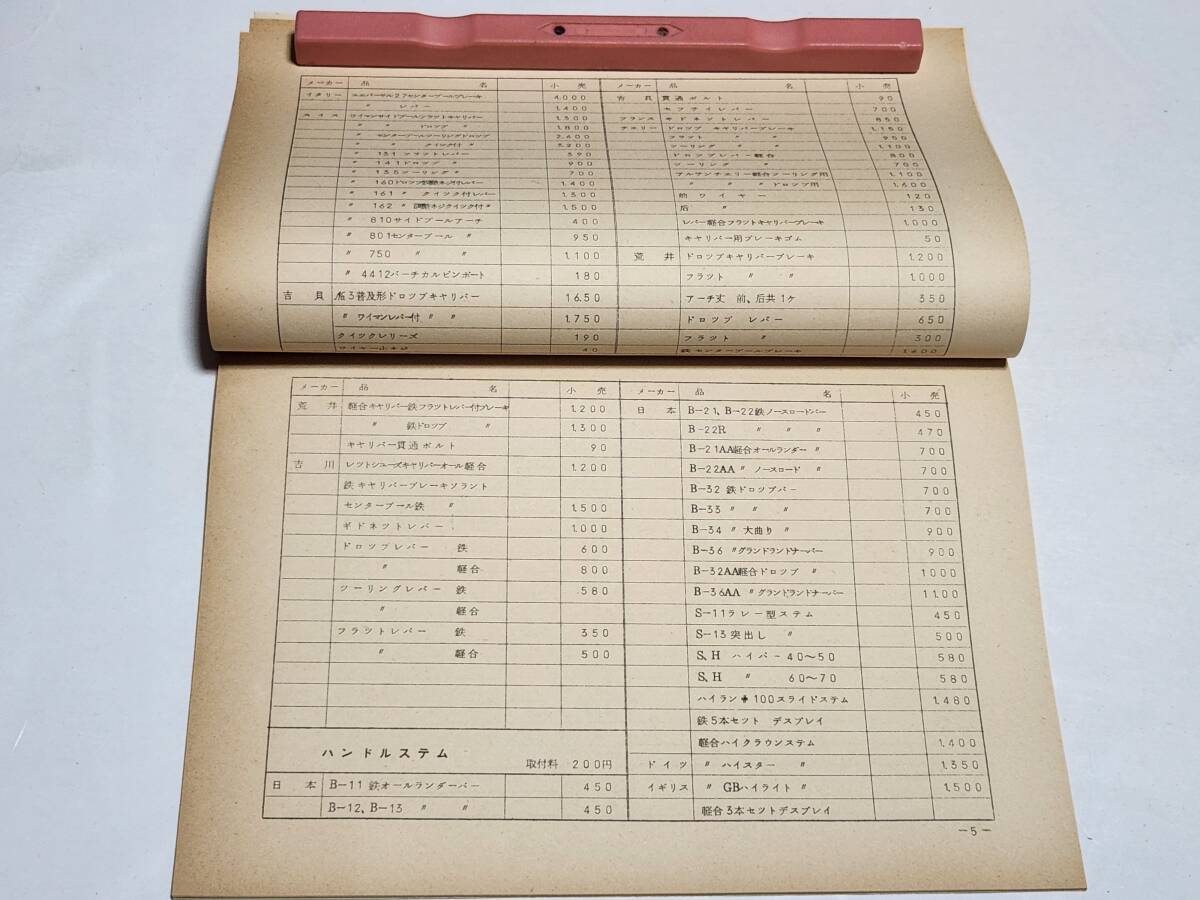 メーカー 品 名 小 売
イタリー ユニバーサル27センタープールブレーキ 4,000
〃 レバー 1,400
スイス ワイマンサイドプールフラントキャリパー 1,500
〃 〃 ドロップ 〃 1,800
〃 センタープールツーリングドロップ 2,600
〃 〃 クイック付〃 3,200
〃 131 フラットレバー 590
〃 141ドロップ 〃 900
〃 135ツーリング〃 700
〃 160ドロップ調整ネジ付レバー 1,400
〃 161 〃 クイック付レバー 1,300
〃 162 〃 調整ネジクイック付〃 1,500
〃 810サイドプールアーチ 400
〃 801センタープール 〃 950
〃 750 〃 〃 1,100
〃 4412バーチカルピンボート 180
吉 貝 3普及形ドロップキャリパー 1650
〃 ワイマンレバー付 〃 〃 1,750
クイックレリーズ 190
40
メーカー 品 名 小 売
吉 貝 貫通ボルト 90
セフティレバー 700
フランス キドネットレバー 850
チェリー ドロップ キャリパーブレーキ 1,150
フラット 〃 〃 950
ツーリング 〃 〃 1,100
ドロップレバー軽合 800
ツーリング 〃 700
アルサンチェリー軽合ツーリング用 1,100
〃 〃 〃 ドロップ用 1,600
前 ワ イ ヤ ー 120
后 〃 130
レバー軽合フラットキャリパーブレーキ 1,000
キャリパー用ブレーキゴム 50
荒 井 ドロップキャリパーブレーキ 1,200
フラット 〃 〃 1,000
アーチ丈 前、后共1ケ 350
ドロップ レバー 650
フラット 〃 300
鉄センタープールブレーキ 1,600
メーカー 品 名 小 売
荒 井 軽合キャリパー鉄フラットレバー付ブレーキ 1,200
〃 鉄ドロップ 〃 1,300
キャリパー貫通ボルト 90
吉 川 レツトシューズキャリパーオール軽合 1,200
鉄キャリパーブレーキソラント
センタープール鉄 〃 1,500
ギドネットレバー 1,000
ドロップレバー 鉄 600
〃 軽合 800
ツーリングレバー 鉄 580
〃 軽合
フラットレバー 鉄 350
〃 軽合 500
ハンドルステム 取付料 200円
日 本 B-11鉄オールランダーバー 450
B-12、B-13 〃 〃 450
メーカー 品 名 小 売
日 本 B-21、B-22鉄ノースロードバー 450
B-22R 〃 〃 〃 470
B-21AA軽合オールランダー 〃 700
B-22AA〃 ノースロード 〃 700
B-32 鉄ドロップバー 700
B-33 〃 〃 〃 700
B-34 〃大曲り 〃 900
B-36 〃グランドランドナーバー 900
B-32AA軽合ドロップ 〃 1000
B-36AA 〃グランドランドナーバー 1100
S-11ラレー型ステム 450
S-13突出し 〃 500
S、H ハイバー40〜50 580
S、H 〃 60〜70 580
ハイラン#100スライドステム 1,480
鉄5本セット デスプレイ
軽合ハイクラウンステム 1,400
ドイツ 〃 ハイスター 〃 1,350
イギリス 〃 GBハイライト 〃 1,500
軽合3本セットデスプレイ
-5-